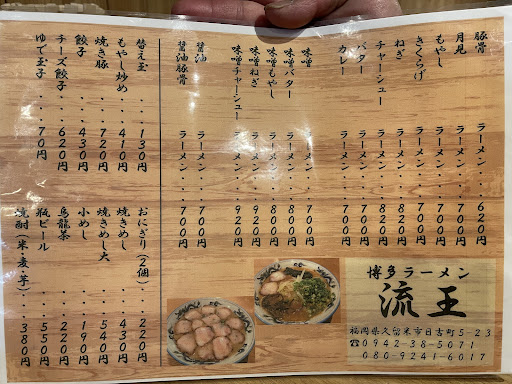 豚骨 ラーメン・・・620円
月見 ラーメン・・・700円
もやし ラーメン・・・700円
きくらげ ラーメン・・・700円
ねぎ ラーメン・・・820円
チャーシュー ラーメン・・・820円
バター ラーメン・・・700円
カレー ラーメン・・・700円
味噌 ラーメン・・・700円
味噌バター ラーメン・・・800円
味噌もやし ラーメン・・・800円
味噌ねぎ ラーメン・・・920円
味噌チャーシュー ラーメン・・・920円
醤油 ラーメン・・・700円
醤油豚骨 ラーメン・・・700円
替え玉・・・130円
もやし炒め・・・410円
焼き豚・・・720円
餃子・・・430円
チーズ餃子・・・620円
ゆで玉子・・・70円
おにぎり(2個)・・・220円
焼きめし・・・430円
焼きめし大・・・540円
小めし・・・190円
烏龍茶・・・220円
瓶ビール・・・550円
焼酎(米・麦・芋)・・・380円
博多ラーメン
流王
福岡県久留米市日吉町5-23
☎0942-38-5071
080-9241-6017